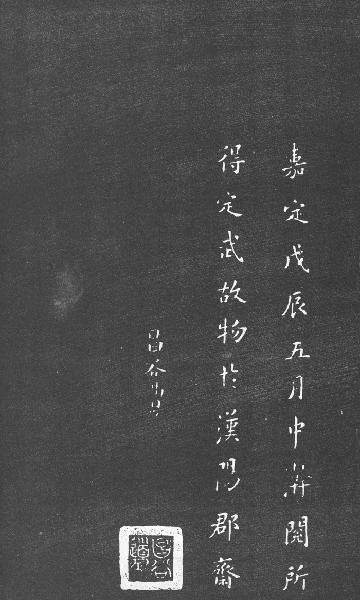 嘉定戊辰五月中澣閱所
得定武故物於漢陽郡齋
昌谷